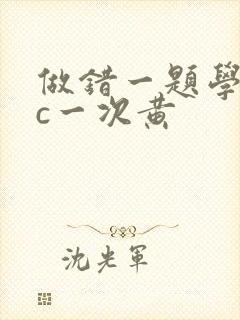 做錯一題學
c一次黃
沈光軍